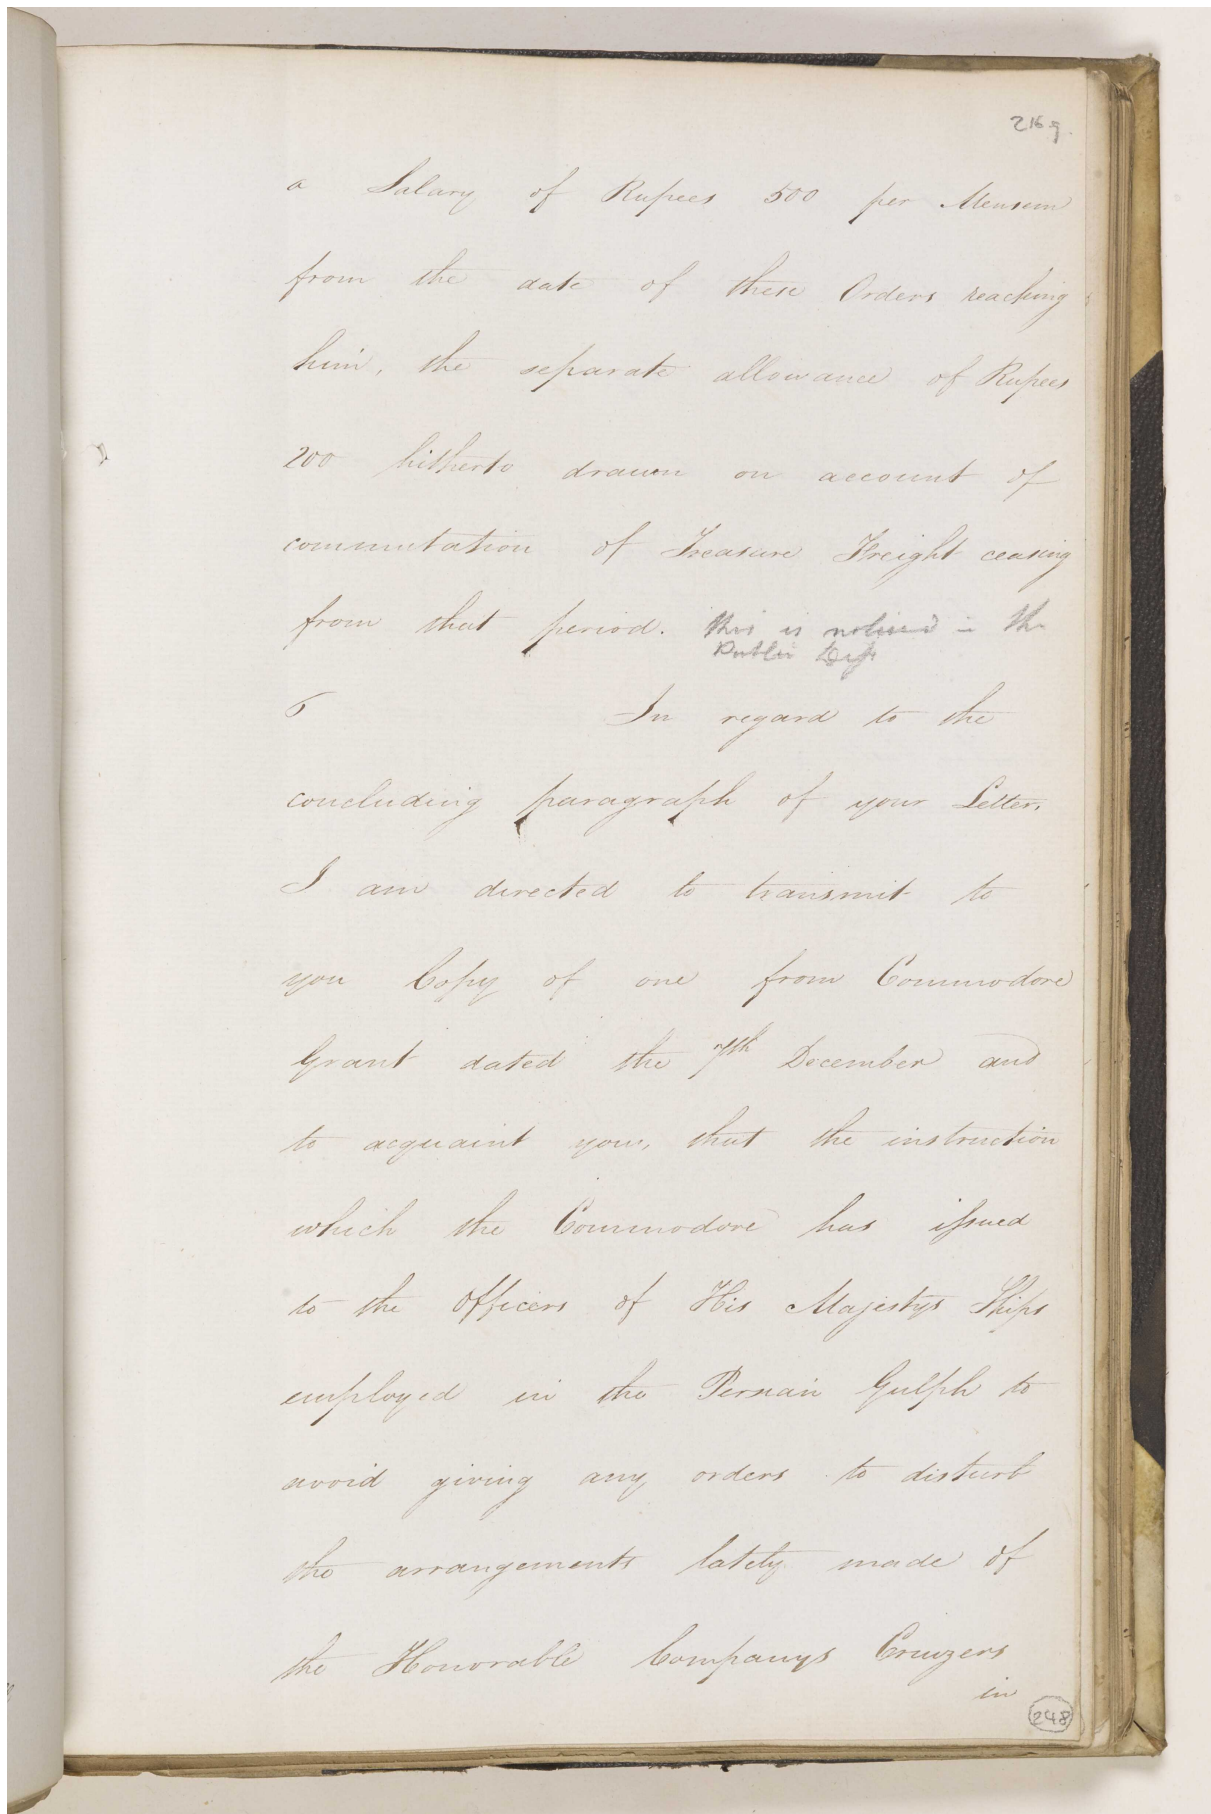 2169.
a Salary of Rupees 500 per Mensem
from the date of these Orders reaching
him, the separate allowance of Rupees
200 hitherto drawn on account of
commutation of Treasure Freight ceasing
from that period. this is noticed in the
Public Dept
6 In regard to the
concluding paragraph of your Letter,
I am directed to transmit to
you Copy of one from Commodore
Grant dated the 7th December and
to acquaint you, that the instruction
which the Commodore has issued
to the Officers of His Majestys Ships
employed in the Persian Gulph to
avoid giving any orders to disturb
the arrangements lately made of
the Honorable Companys Cruizers
in
248